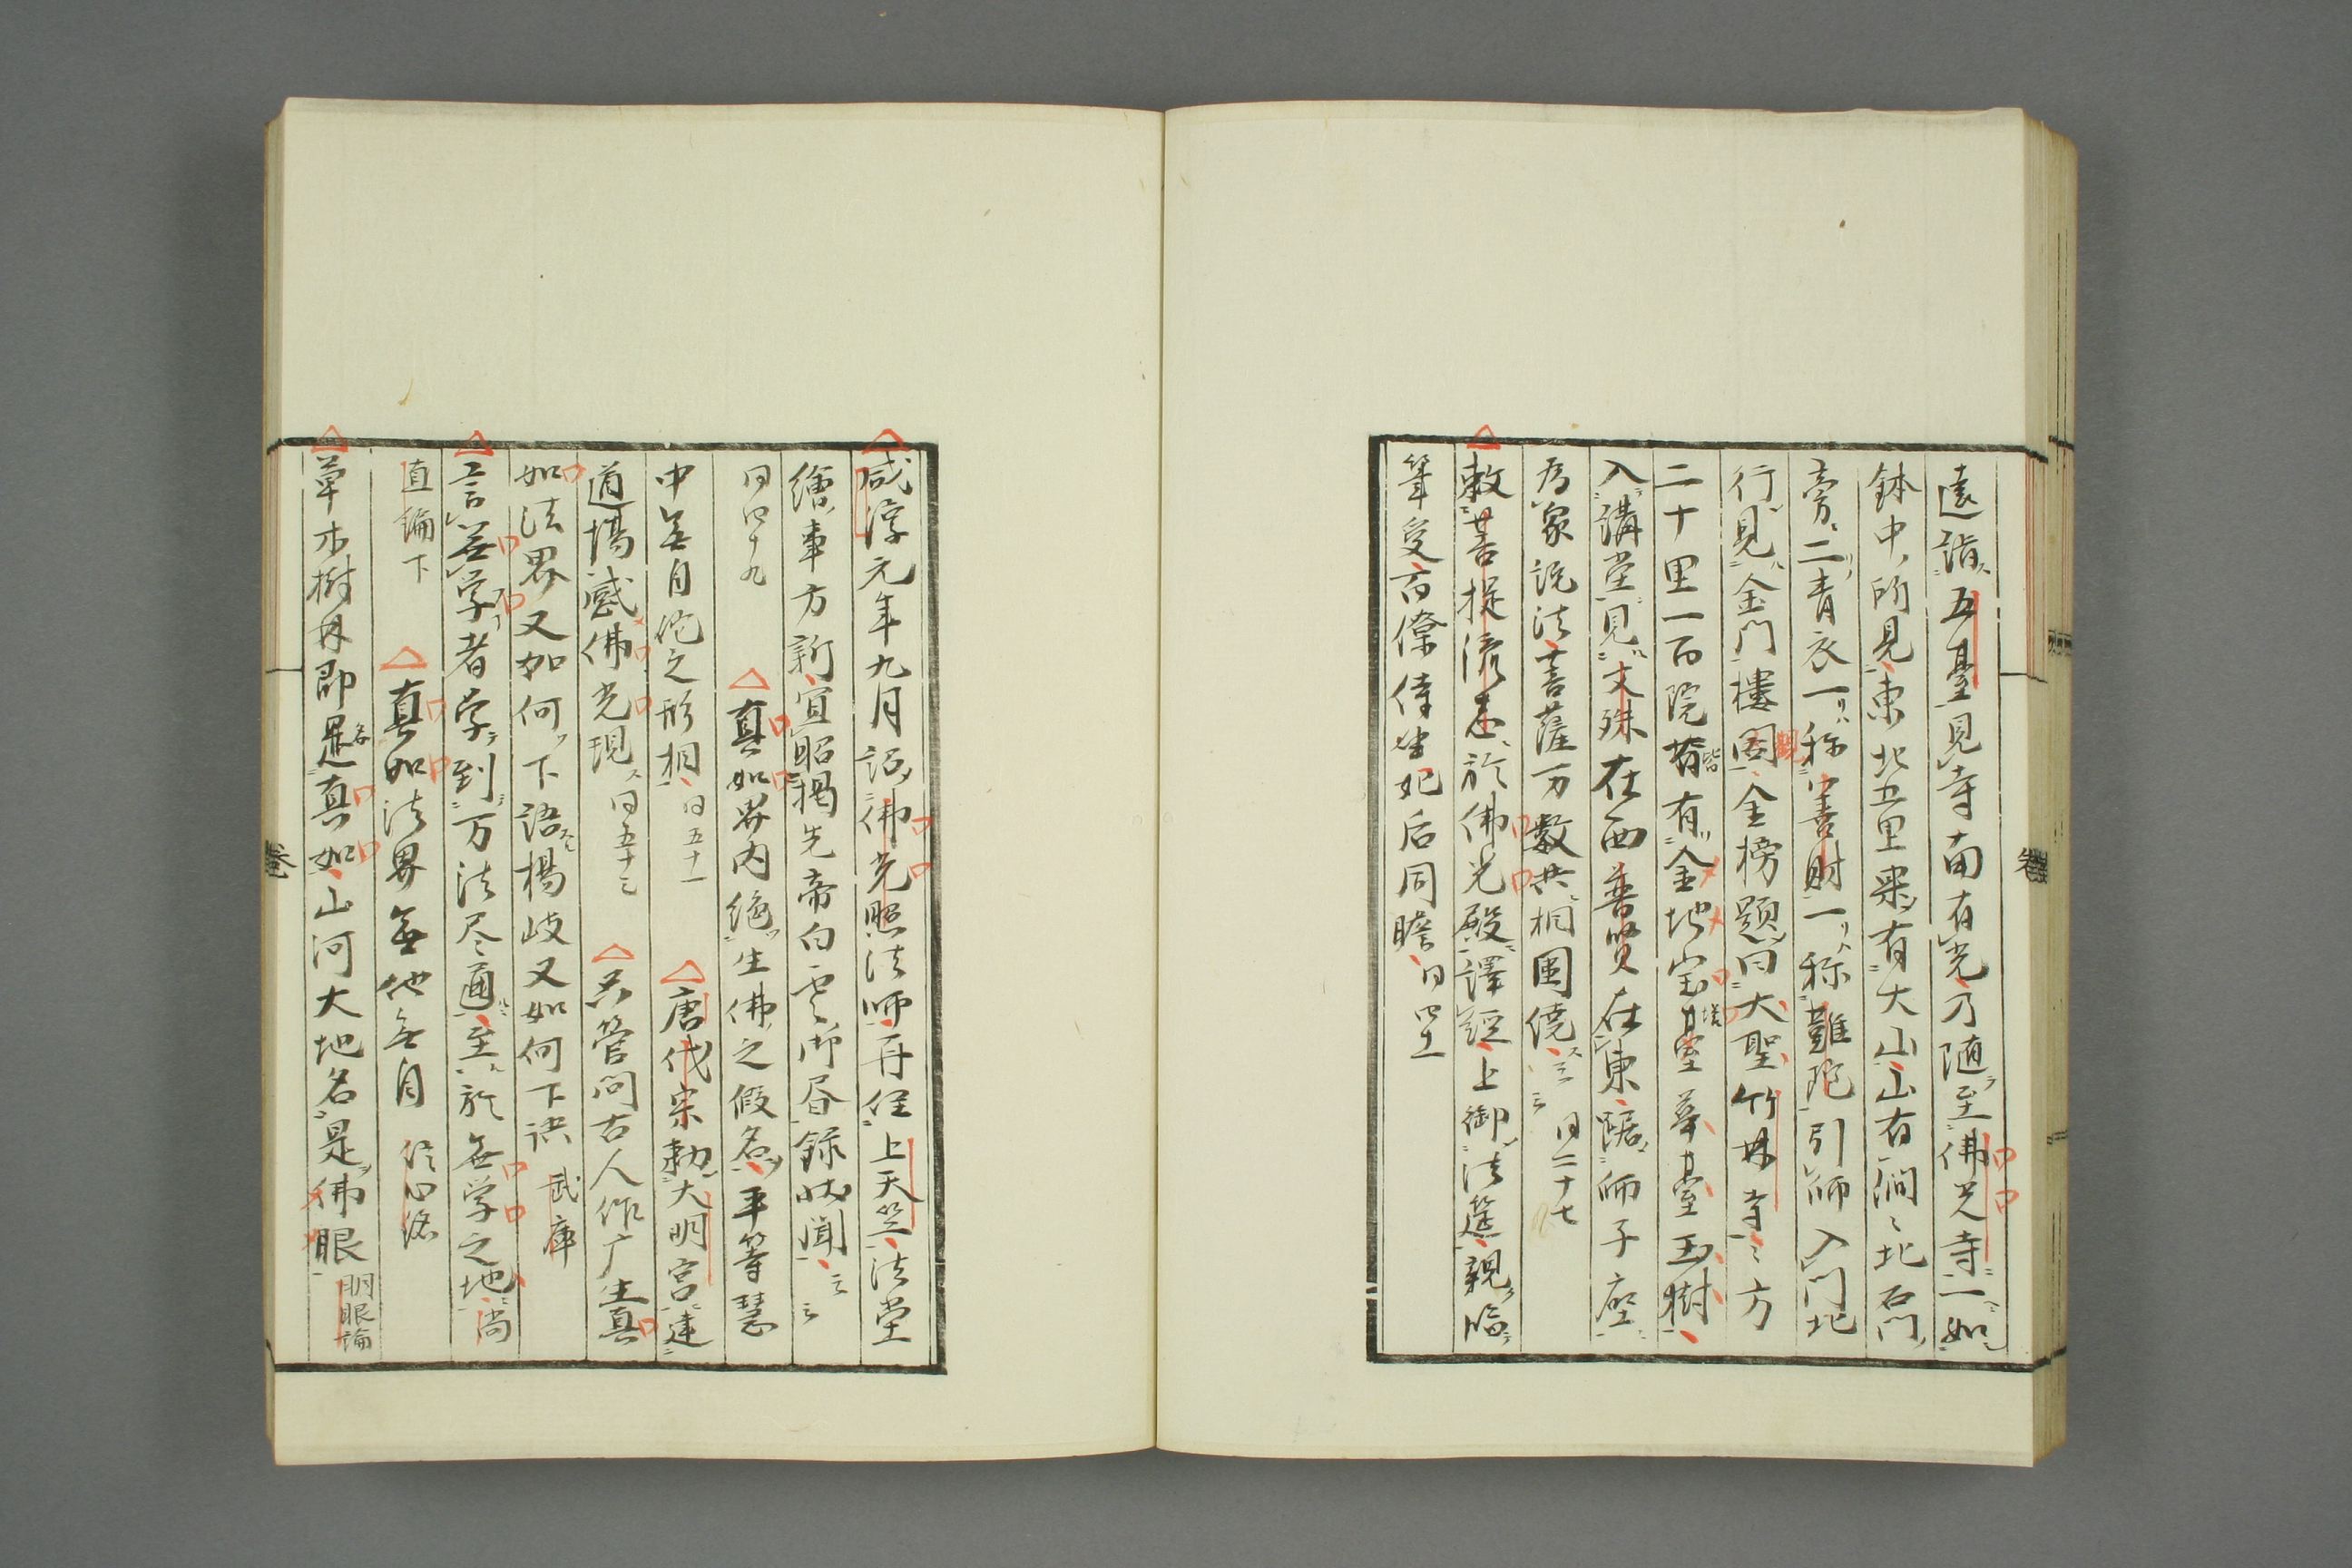 遠詣五臺見寺南有光乃随至佛光寺一如
鉢中所見東北五里果有大山山有澗々北石門
旁二青衣一称善財一称難陀引師入門北
行見金門樓閣金榜題曰大聖竹林寺々方
二十里一百院皆有金地宝塔華臺玉樹
入講堂見文殊在西普賢在東踞師子座
為衆説法菩薩万数共相圍繞云云 同二十七
敕菩提流志於佛光殿譯経上御法筵親臨
筆受百僚侍坐妃后同瞻 同四十一
咸淳元年九月詔佛光照法師再住上天竺法堂
繪事方新宣昭揭先帝白雲御昼錦以聞云云
同四十九 真如界内絶生佛之假名平等慧
中無自佗之形相 同五十一 唐代宗勅大明宮建
道場感佛光現 同五十三 只管問古人作广生真
如法界又如何下語楊岐又如何下語 武庫
言無学者学到万法尽通至於無学之地 尚
直論下 真如法界無他無自 信心銘
草木樹林即是真如山河大地名是佛眼 明眼論